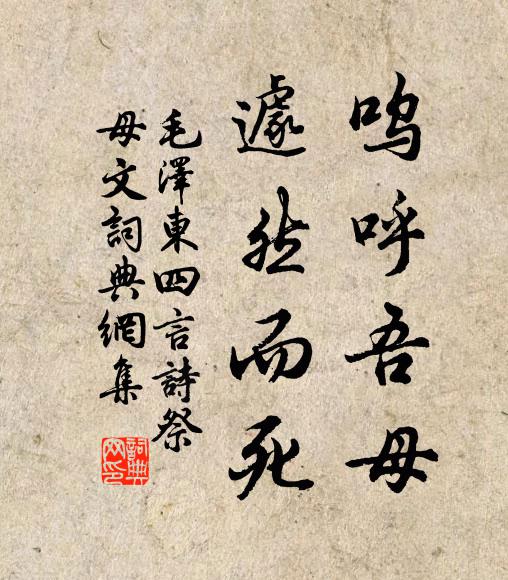 呜呼吾母
遽然而死
毛澤東四言詩祭
母文詞典網集
詞典
网印